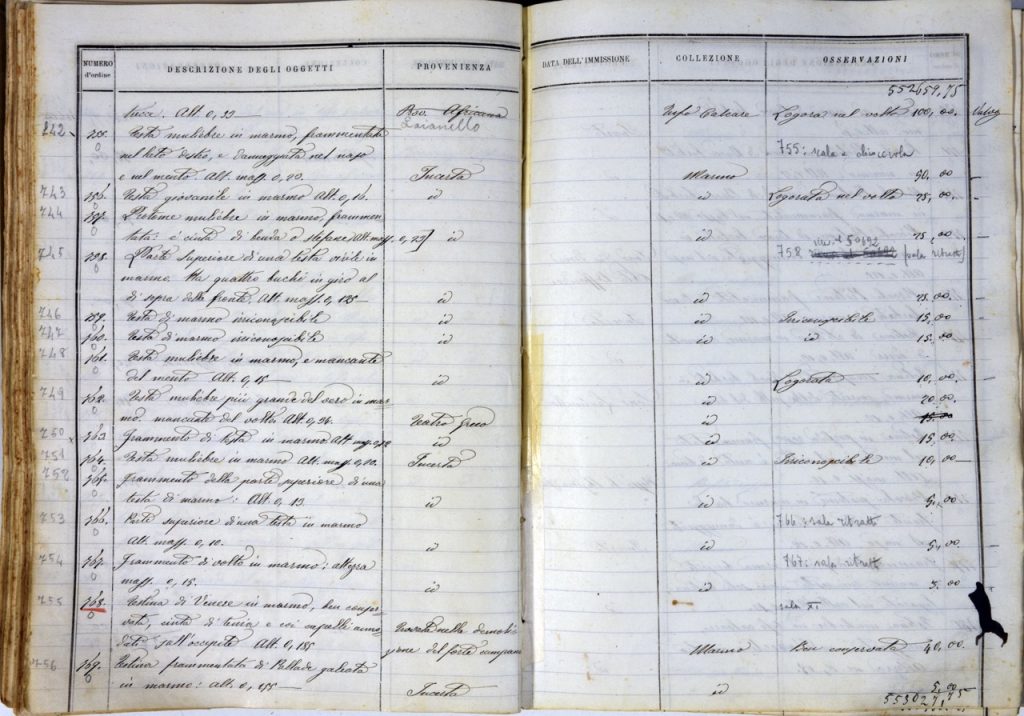 NUMERO d'ordine DESCRIZIONE DEGLI OGGETTI PROVENIENZA DATA DELL'IMMISSIONE COLLEZIONE OSSERVAZIONI
552659,75
Alt. 0,22 Africana Logora nel volto 100,00
742 755 Testa muliebre in marmo, frammentata Laianello
nel lato destro, e danneggiata nel naso 755: sala a chiocciola
e nel mento. Alt. mass. 0,20. Incerta Marmo 50,00
743 756 Testa giovanile in marmo Alt. 0,16. id id Logorata nel volto 25,00
744 757 Protome muliebre in marmo, frammen
tata: è cinta di benda o stefane Alt. mass. 0,23 id id 25,00
745 758 Parte superiore di una testa virile in 758 inv. 50692 (sala ritratti)
marmo. Ha quattro buchi in giro al
di sopra della fronte. Alt. mass. 0,185 id id 25,00
746 759 Testa di marmo irriconoscibile id id Irriconoscibile 15,00
747 760 Testa di marmo irriconoscibile id id id 15,00
748 761 Testa muliebre in marmo, e mancante
del mento Alt. 0,15 id id Logorata 10,00
749 762 Testa muliebre più grande del vero in mar id 20,00
mo. mancante del volto. Alt. 0,26. Teatro Greco id 15,00
750 763 Frammento di testa in marmo Alt. mass. id id 15,00
751 764 Testa muliebre in marmo Alt. mass. 0,20. Incerta id Irriconoscibile 10,00
752 765 Frammento della parte superiore di una
testa di marmo: Alt. 0,13 id id 5,00
753 766 Parte superiore di una testa in marmo 766: sala ritratti
Alt. mass. 0,10. id id 5,00
754 767 Frammento di volto in marmo: altezza 767: sala ritratti
mass. 0,15. id id 5,00
755 768 Testina di Venere in marmo, ben conser sala XI
vata, cinta di tenia e coi capelli anno Trovata nelle demoli
dati sull'occipite Alt. 0,185 zione del forte campana Marmo Ben conservata 40,00
756 769 Testina frammentata di Pallade galeata
in marmo: Alt. 0,155 Incerta id 5,00
553027,75